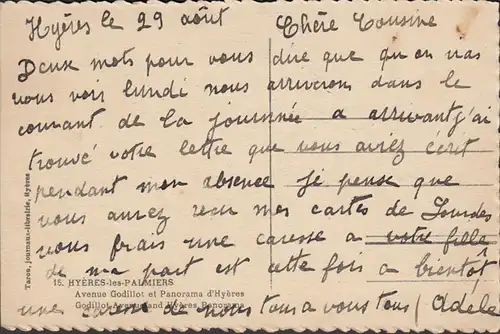 Hyères le 29 août Chère Cousine
Deux mots pour vous dire que qu'on vas
vous voir lundi nous arriverons dans le
courant de la journnée a arrivant j'ai
trouvé votre lettre que vous aviez écrit
pendant mon absence je pense que
vous aurez recu mes cartes de Lourdes
vous frais une caresse a votre fille
de ma part est cette fois a bientôt
une caresse de nous tous a vous tous (Adéle
15. HYÈRES-les-PALMIERS
Avenue Godillot et Panorama d'Hyères
Godillot Avenue and Hyères Panorama
Taros, journaux-librairie, Hyères